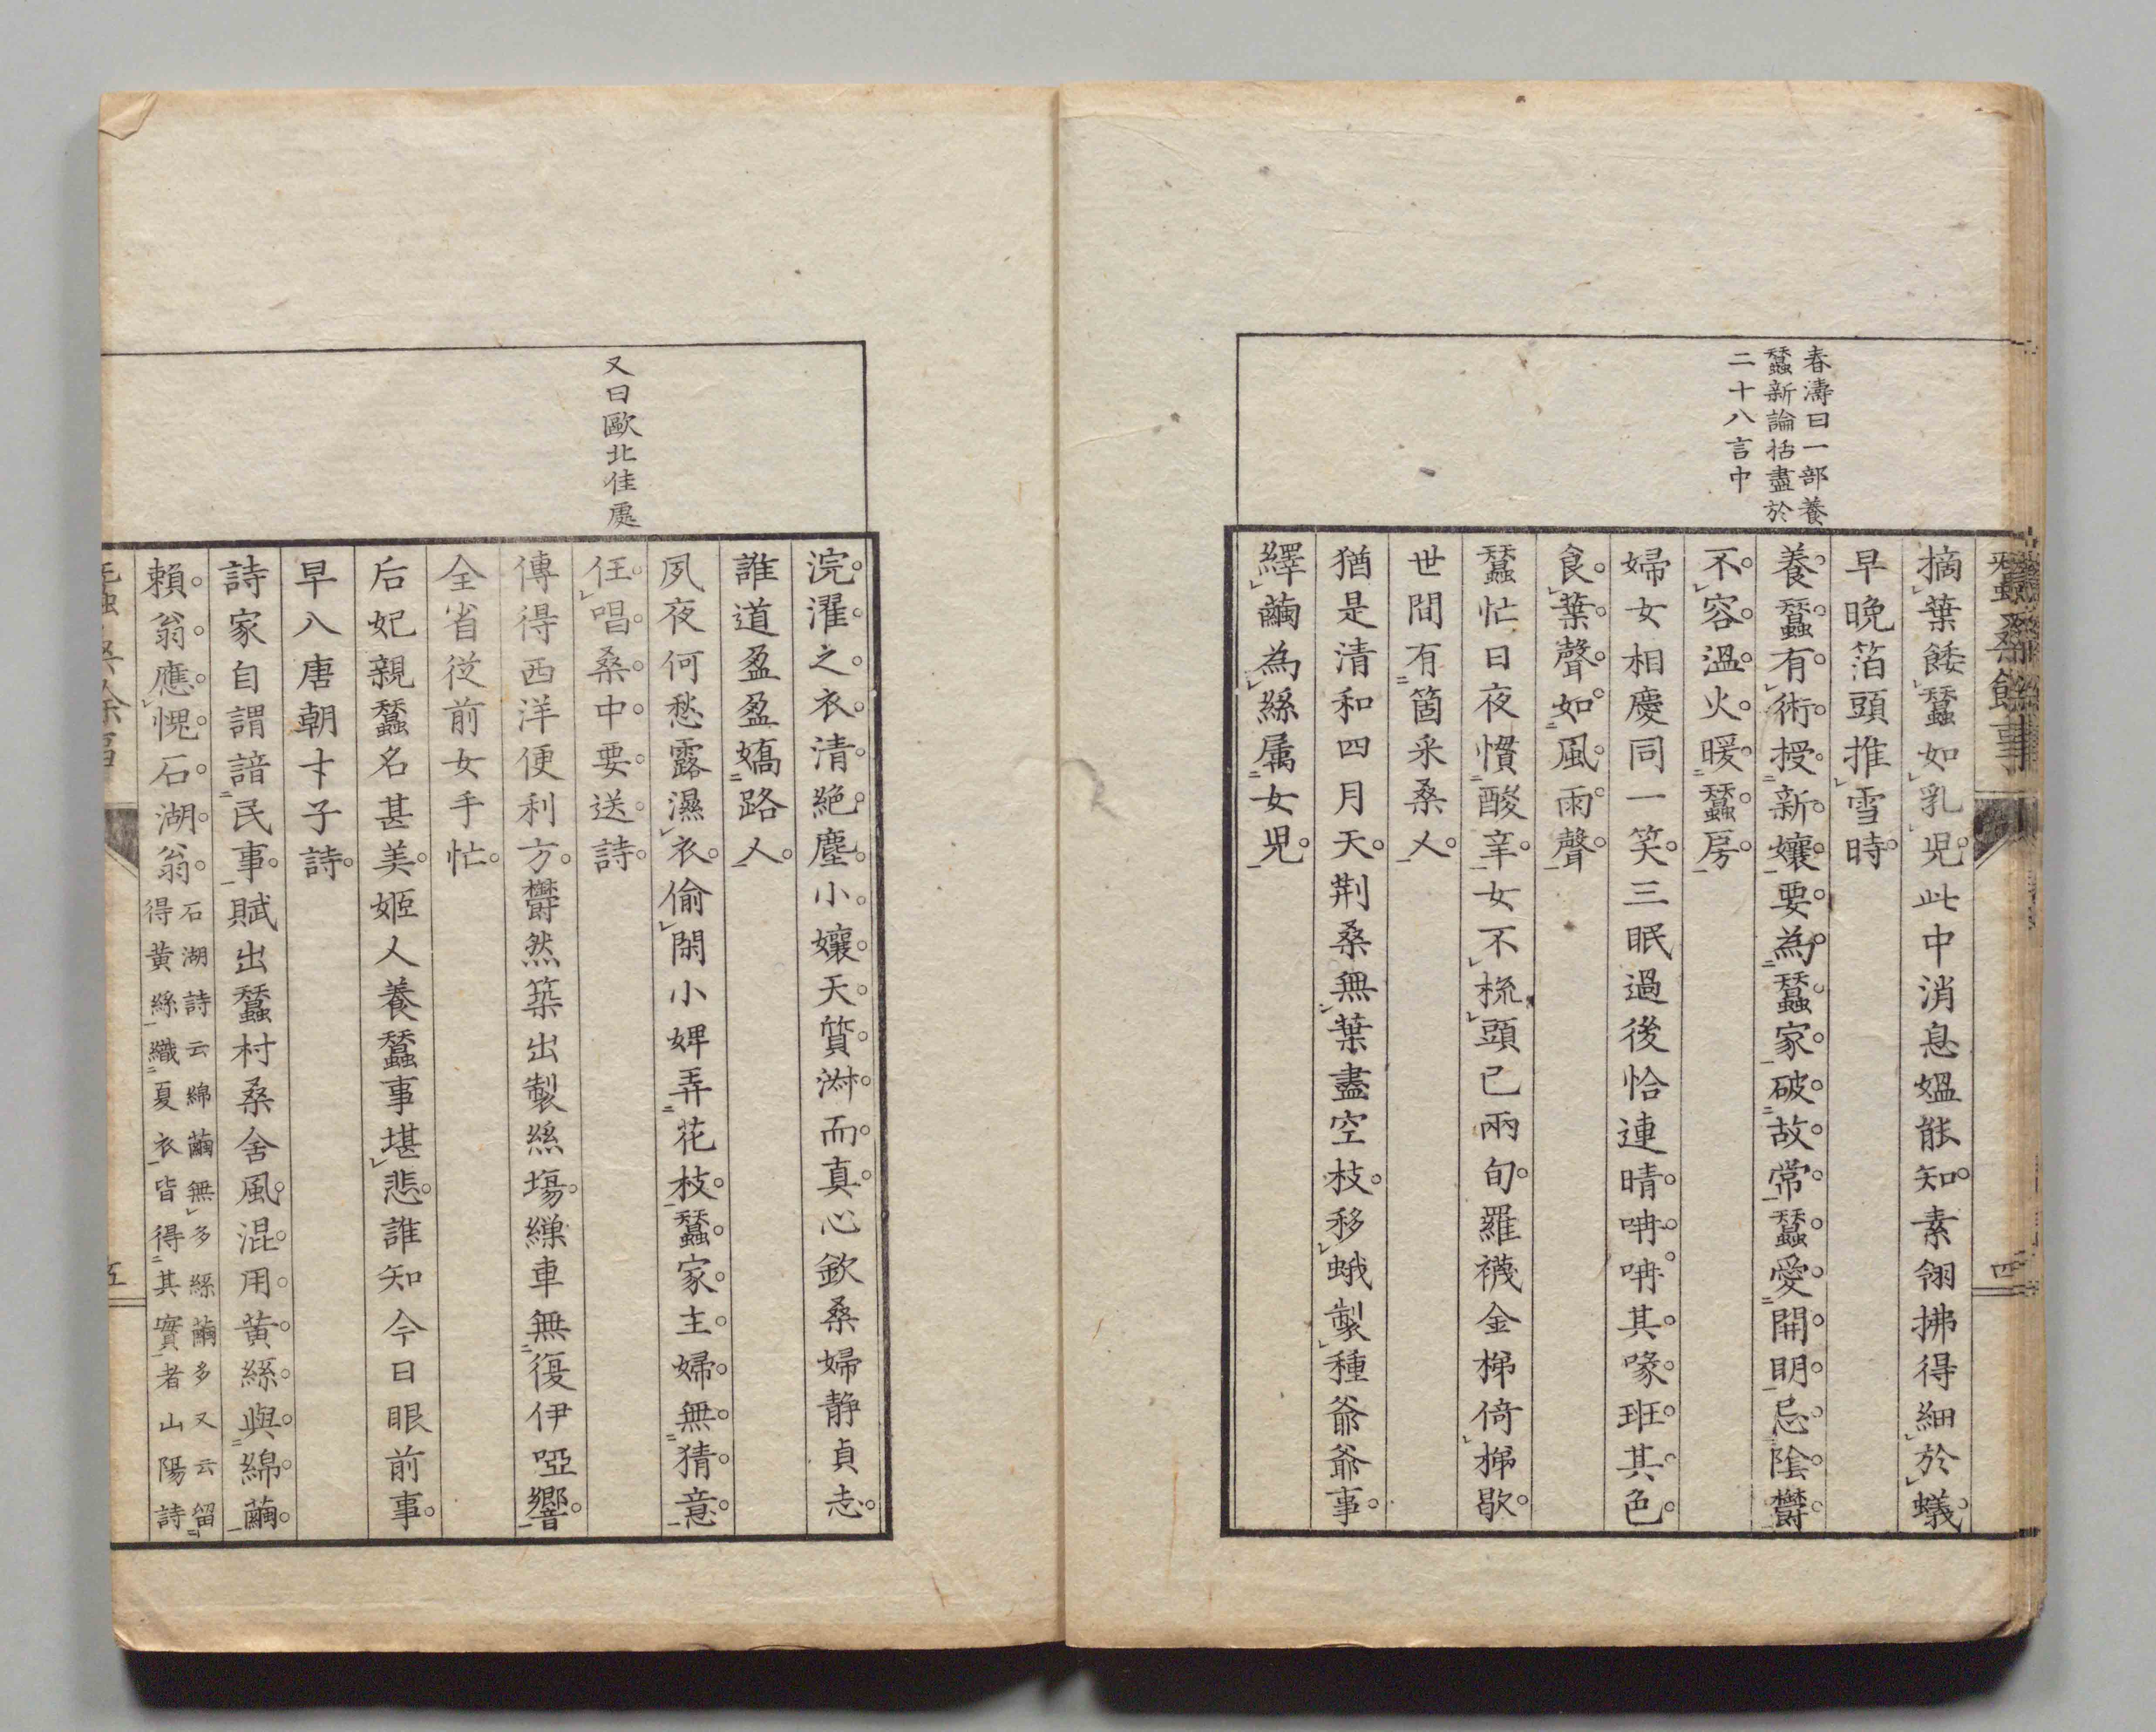 春濤曰一部養
蠶新論括盡於
二十八言中
蠶桑餘事
四
摘葉餧蠶如乳兒此中消息媼能知素翎拂得細於蟻
早晩箔頭推雪時
養蠶有術授新孃要為蠶家破故常蠶愛開明忌陰鬱
不容溫火暖蠶房
婦女相慶同一笑三眠過後恰連晴呥呥其喙班其色
食葉聲如風雨聲
蠶忙日夜慣酸辛女不梳頭已兩旬羅襪金梯倚梯歇
世間有箇采桑人
猶是清和四月天荆桑無葉盡空枝移蛾製種爺爺事
繹繭為絲属女兒
又曰歐北佳處
浣濯之衣清絶塵小孃天質淋而真心欽桑婦静貞志
誰道盈盈嬌路人
夙夜何愁露濕衣偷閑小婢弄花枝蠶家主婦無猜意
任唱桑中要送詩
傳得西洋便利方鬱然築出製絲塲繅車無復伊啞響
全省從前女手忙
后妃親蠶名甚美姬人養蠶事堪悲誰知今日眼前事
早入唐朝才子詩
詩家自謂諳民事賦出蠶村桑舍風混用黄絲與綿繭
賴翁應愧石湖翁
石湖詩云綿繭無多絲繭多又云留
得黄絲織夏衣皆得其實者山陽詩
五